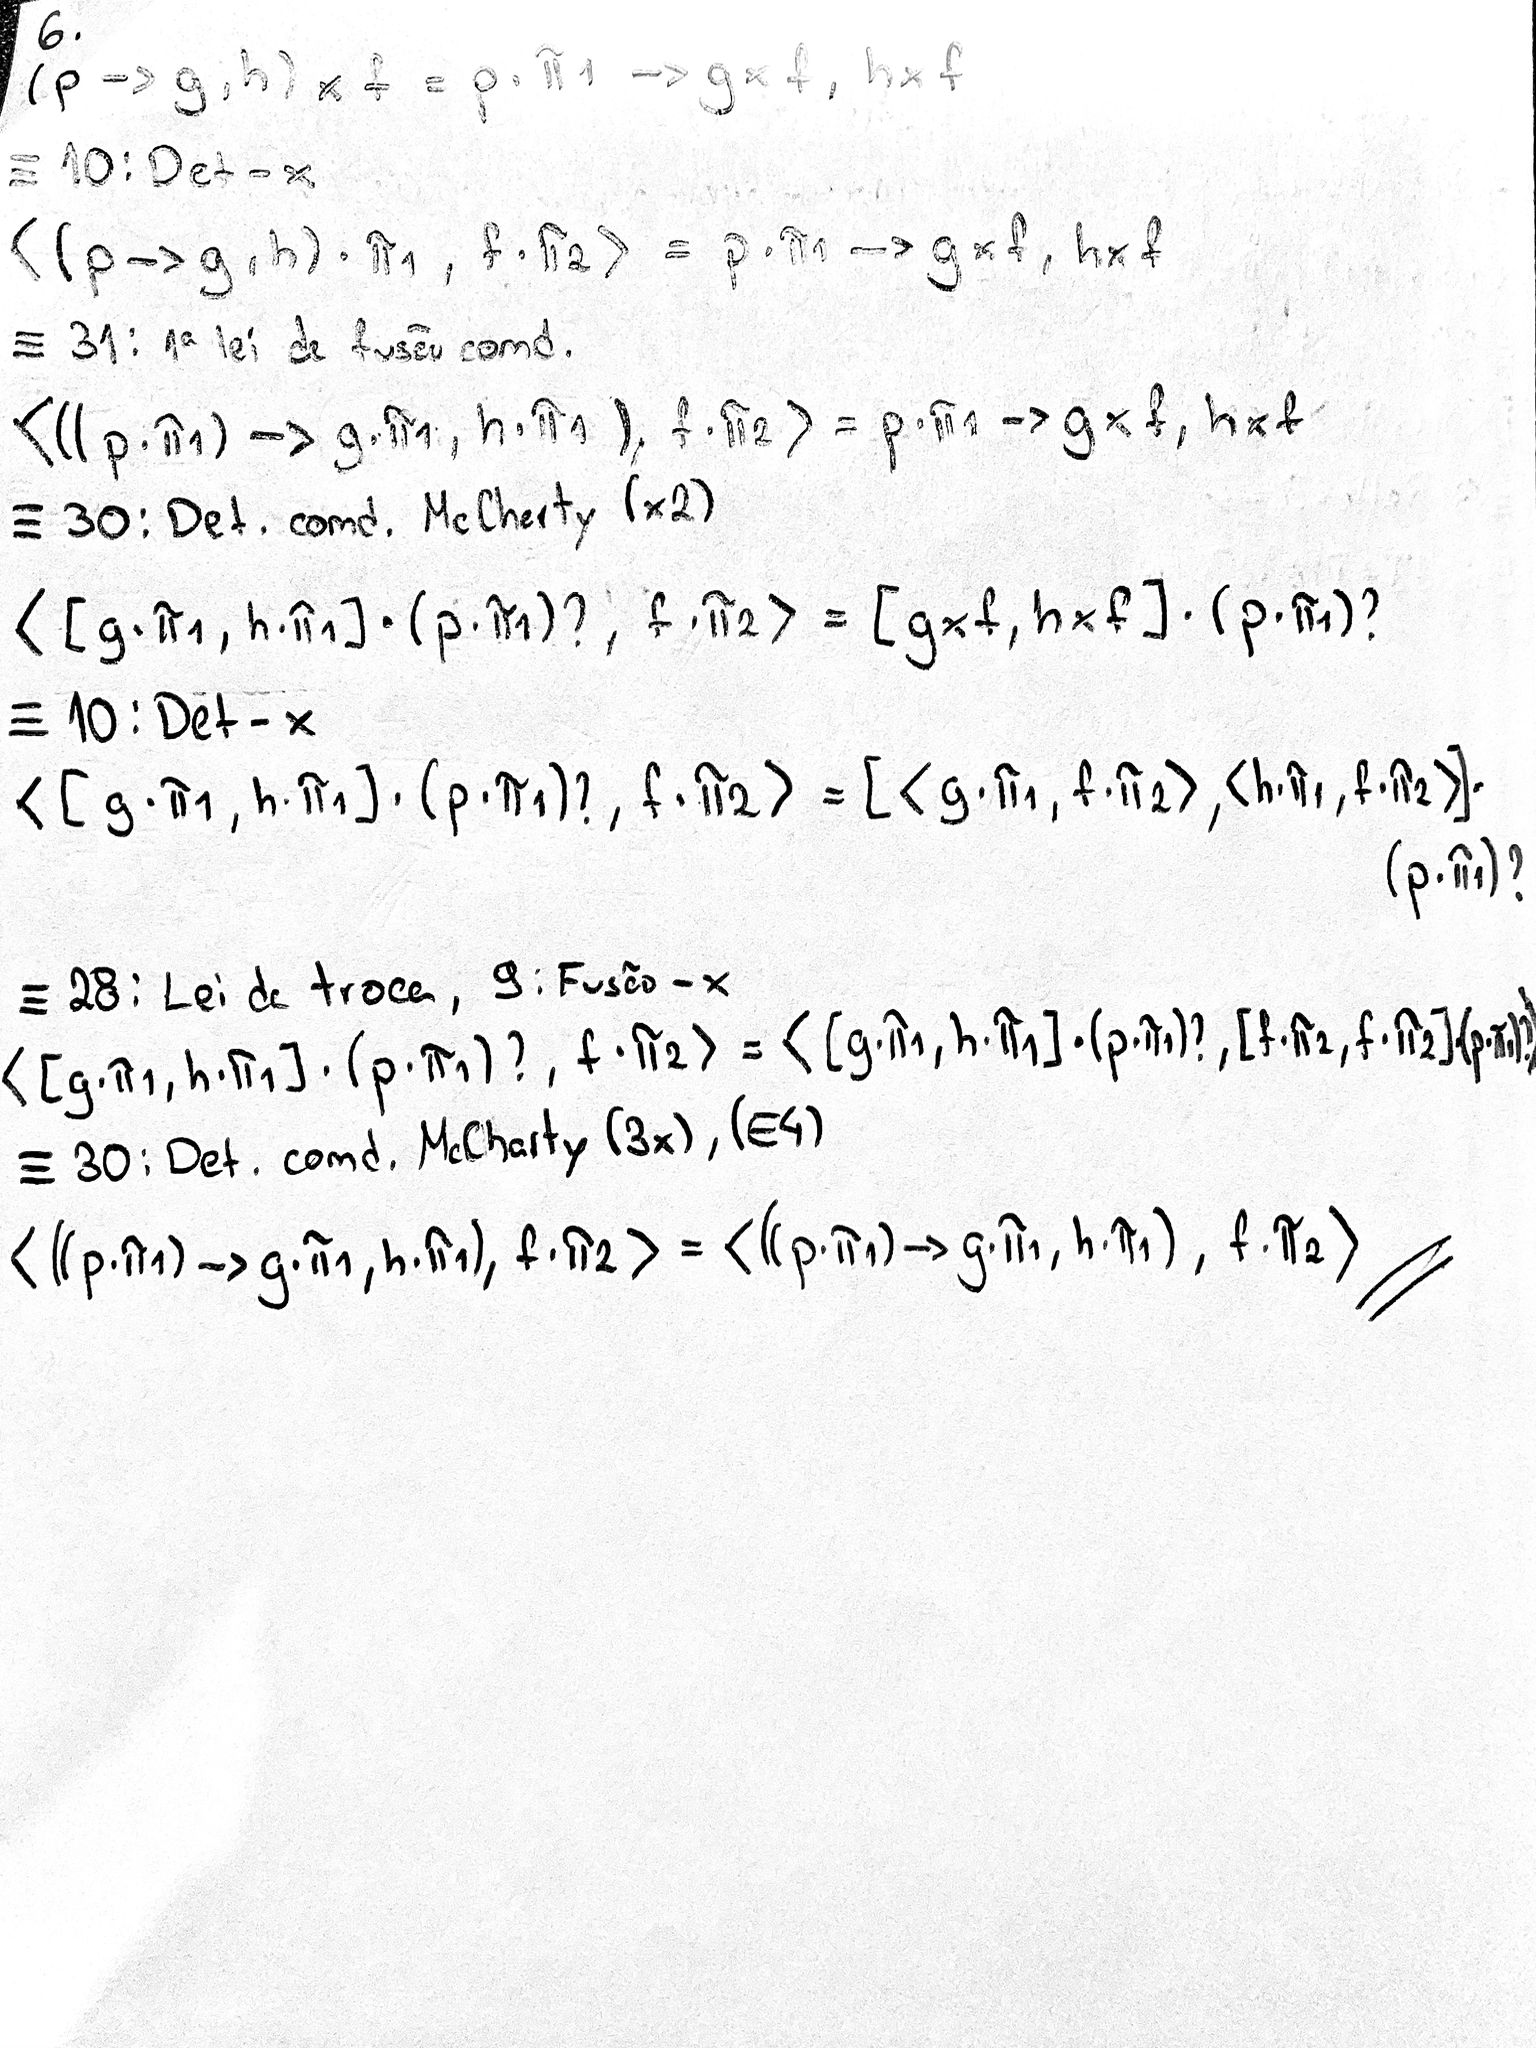 6.
(p -> g, h) x f = p · π1 -> g x f, h x f
≡ 10: Def - x
<(p -> g, h) · π1, f · π2> = p · π1 -> g x f, h x f
≡ 31: 1ª lei de fusão cond.
<((p · π1) -> g · π1, h · π1), f · π2> = p · π1 -> g x f, h x f
≡ 30: Def. cond. McCharty (x2)
<[g · π1, h · π1] · (p · π1)?, f · π2> = [g x f, h x f] · (p · π1)?
≡ 10: Def - x
<[g · π1, h · π1] · (p · π1)?, f · π2> = [<g · π1, f · π2>, <h · π1, f · π2>] ·
(p · π1)?
≡ 28: Lei da troca, 9: Fusão - x
<[g · π1, h · π1] · (p · π1)?, f · π2> = <[g · π1, h · π1] · (p · π1)?, [f · π2, f · π2] · (p · π1)?>
≡ 30: Def. cond. McCharty (3x), (E4)
<((p · π1) -> g · π1, h · π1), f · π2> = <((p · π1) -> g · π1, h · π1), f · π2> //